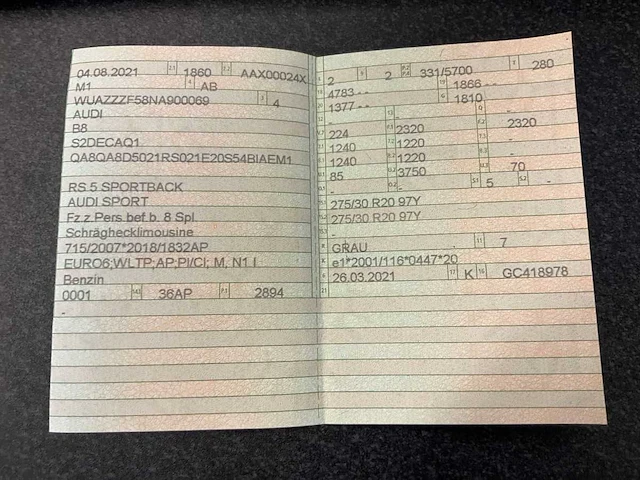 04.08.2021 2.1 1860 2.2 AAX00024X
M1 4 AB
WUAZZZF58NA900069 3 4
AUDI
B8
S2DECAQ1
QA8QA8D5021RS021E20S54BIAEM1
RS 5 SPORTBACK
AUDI SPORT
Fz.z.Pers.bef.b. 8 Spl.
Schräghecklimousine
715/2007*2018/1832AP
EURO6;WLTP;AP;PI/CI; M, N1 I
Benzin
0001 14.1 36AP P.1 2894
-
2 9 2 P.2 P.4 331/5700 T 280
4783 - - 19 1866 - -
1377 - - G 1810
- 13 - Q -
224 2320 2320
1240 1220 -
1240 1220 -
85 3750 70
- O.2 - S.1 5 S.2 -
275/30 R20 97Y
275/30 R20 97Y
-
R GRAU 11 7
K e1*2001/116*0447*20
6 26.03.2021 17 K 16 GC418978
21